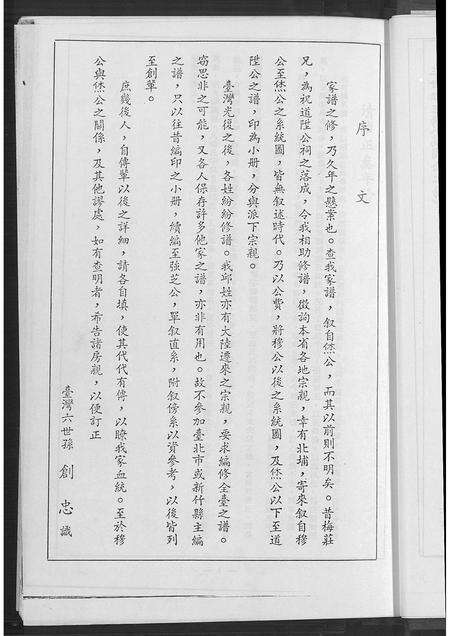 序文
家譜之修，乃久年之懸案也。查我家譜，叙自烋公，而其以前則不明矣。昔梅莊
兄，為祝道陞公祠之落成，令我相助修譜，徵詢本省各地宗親，幸有北埔，寄來叙自穆
公至烋公之系統圖，皆無叙述時代。乃以公費，將穆公以後之系統圖，及烋公以下至道
陞公之譜，印為小册，分與派下宗親。
臺灣光復之後，各姓紛紛修譜。我邱姓亦有大陸遷來之宗親，要求編修全臺之譜。
竊思非之可能，又各人保存許多他家之譜，亦非有用也。故不參加臺北市或新竹縣主編
之譜，只以往昔編印之小册，續編至強芝公，單叙直系，附叙傍系以資參考，以後皆列
至創輩。
庶幾後人，自傳輩以後之詳細，請各自填，使其代代有傳，以瞭我家血統。至於穆
公與烋公之關係，及其他謬處，如有查明者，希告諸房親，以便訂正
臺灣六世孫 創 忠 識